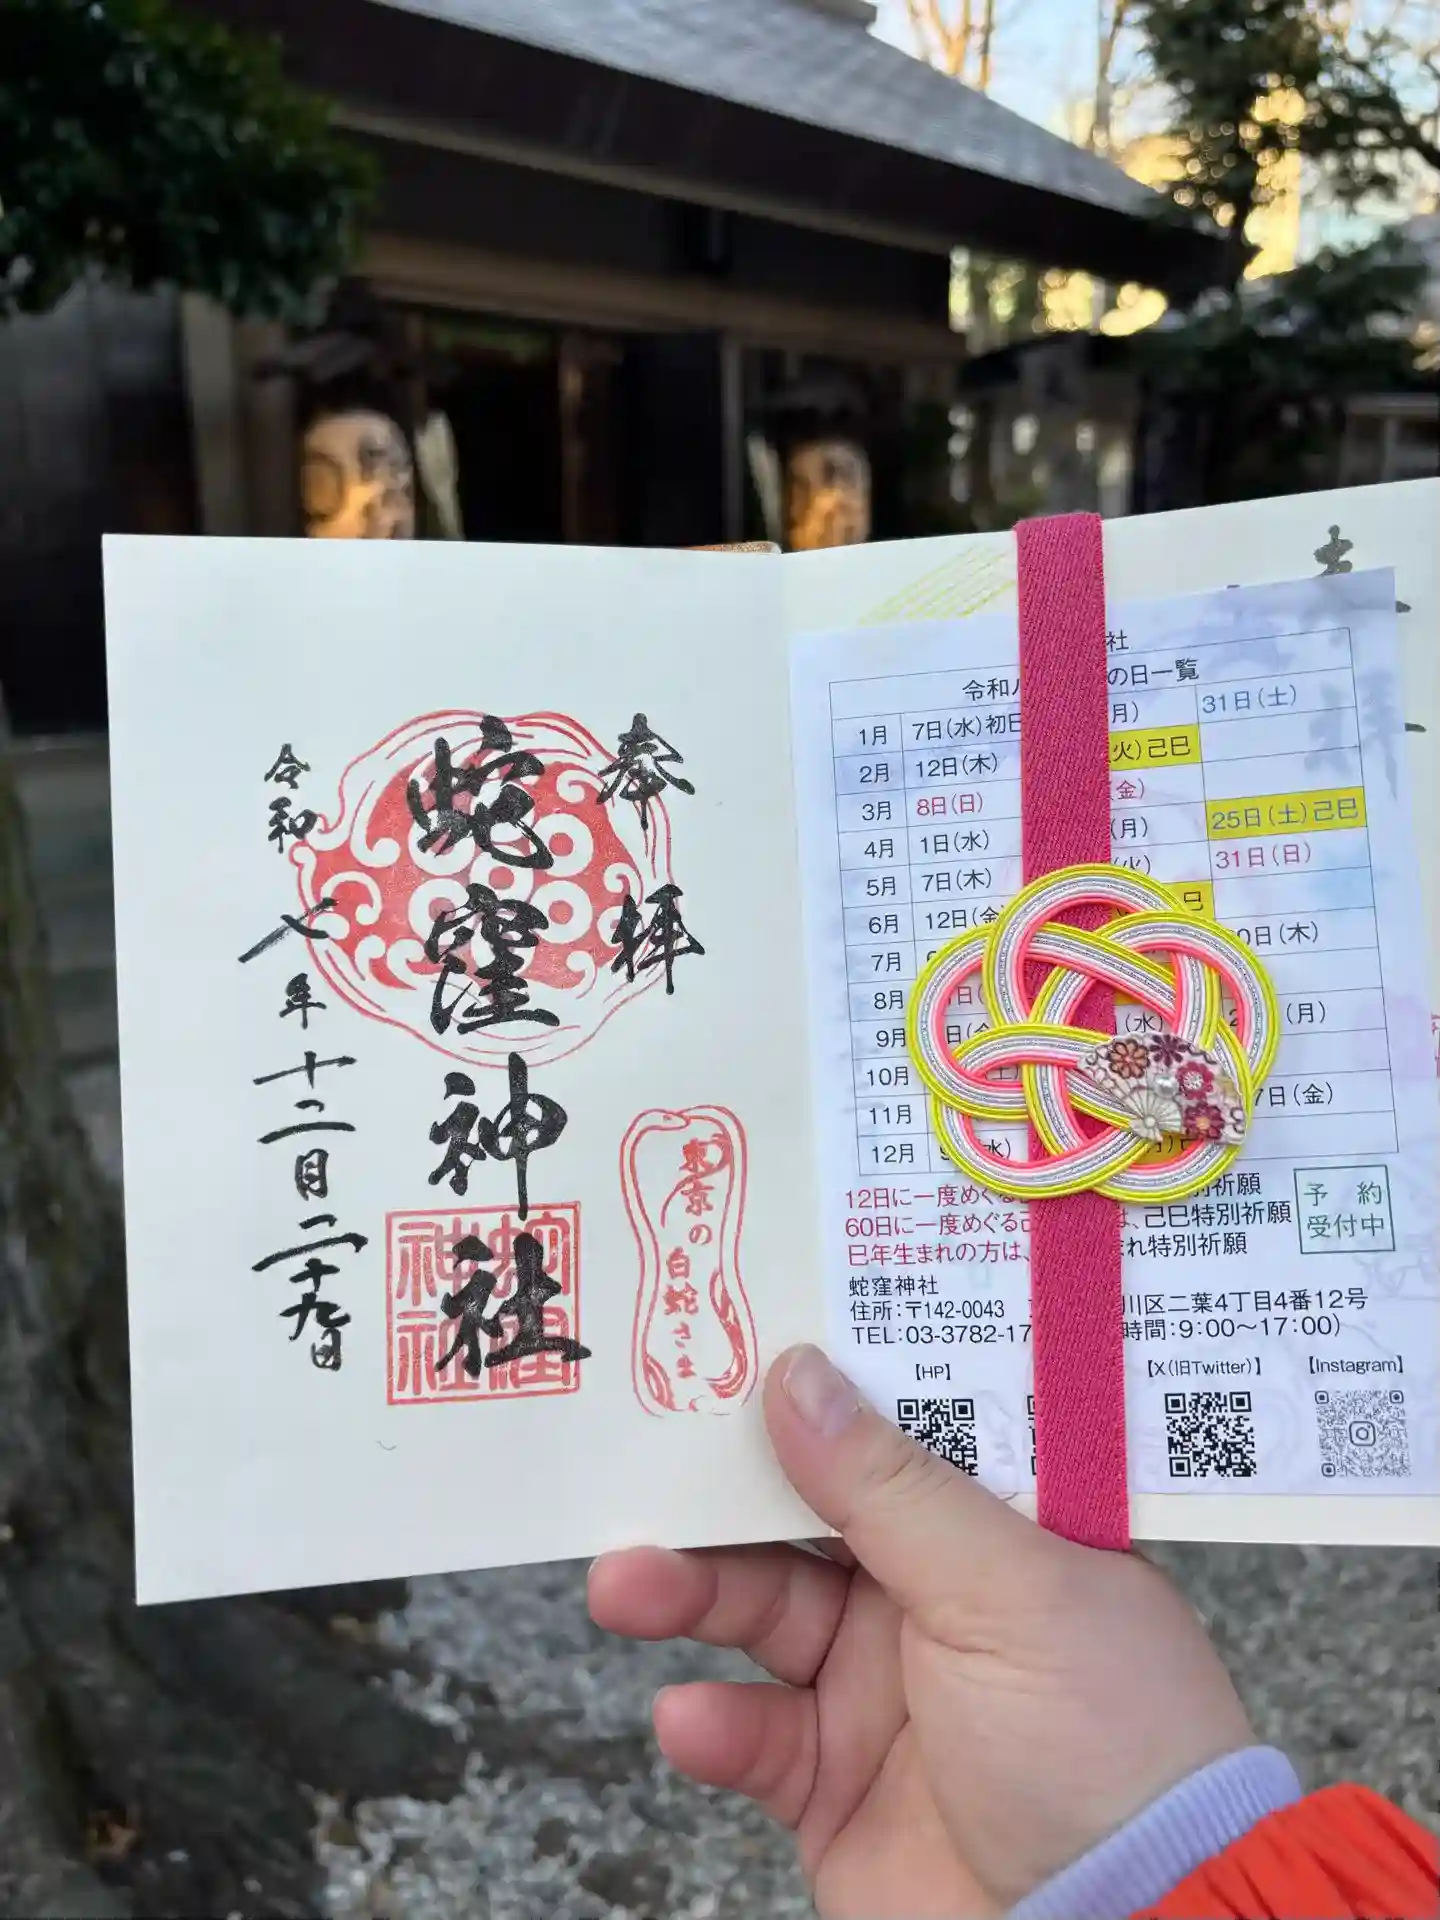 奉拝
蛇窪神社
令和七年十二月二十九日
東京の
白蛇さま
蛇窪神社
社
令和八 の日一覧
1月 7日(水)初巳 月) 31日(土)
2月 12日(木) (火)己巳
3月 8日(日) (金)
4月 1日(水) (月) 25日(土)己巳
5月 7日(木) (火) 31日(日)
6月 12日(金 巳
7月 0日(木)
8月 日(
9月 日(金 (水) (月)
10月 土)
11月 7日(金)
12月 9 (水) 月)己
12日に一度めぐる 別祈願
60日に一度めぐる己 は、己巳特別祈願
巳年生まれの方は、 れ特別祈願
予約
受付中
蛇窪神社
住所:〒142-0043 川区二葉4丁目4番12号
TEL:03-3782-17 時間:9:00～17:00)
【HP】 【X(旧Twitter)】 【Instagram】